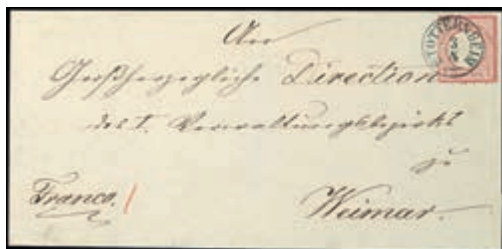 STOTTERNHEIM
An
Großherzogliche Direction
des I. Verwaltungsbezirks
zu
Franco.
Weimar.